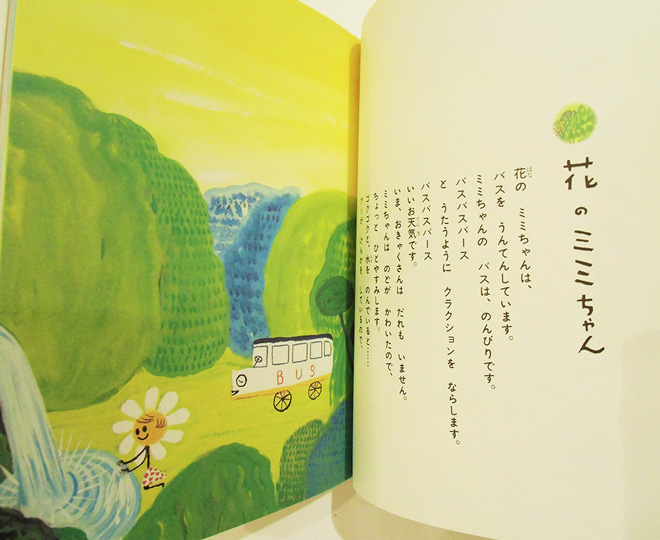 花のミミちゃん
花の　ミミちゃんは、
バスを　うんてんしています。
ミミちゃんの　バスは、のんびりです。
バスバスバース
と　うたうように　クラクションを　ならします。
バスバスバース
いいお天気です。
いま、おきゃくさんは　だれも　いません。
ミミちゃんは　のどが　かわいたので、
ちょっと　ひとやすみします。
ゴクゴクと、水を　のんでいると……
けんかを　しているので、
BUS